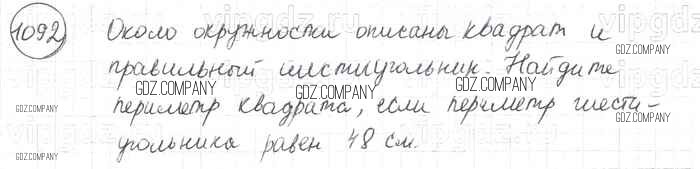 1092 Около окружности описаны квадрат и
правильный шестиугольник. Найдите
периметр квадрата, если периметр шести-
угольника равен 48 см.
GDZ.COMPANY
GDZ.COMPANY
GDZ.COMPANY
GDZ.COMPANY
GDZ.COMPANY
GDZ.COMPANY
GDZ.COMPANY
GDZ.COMPANY